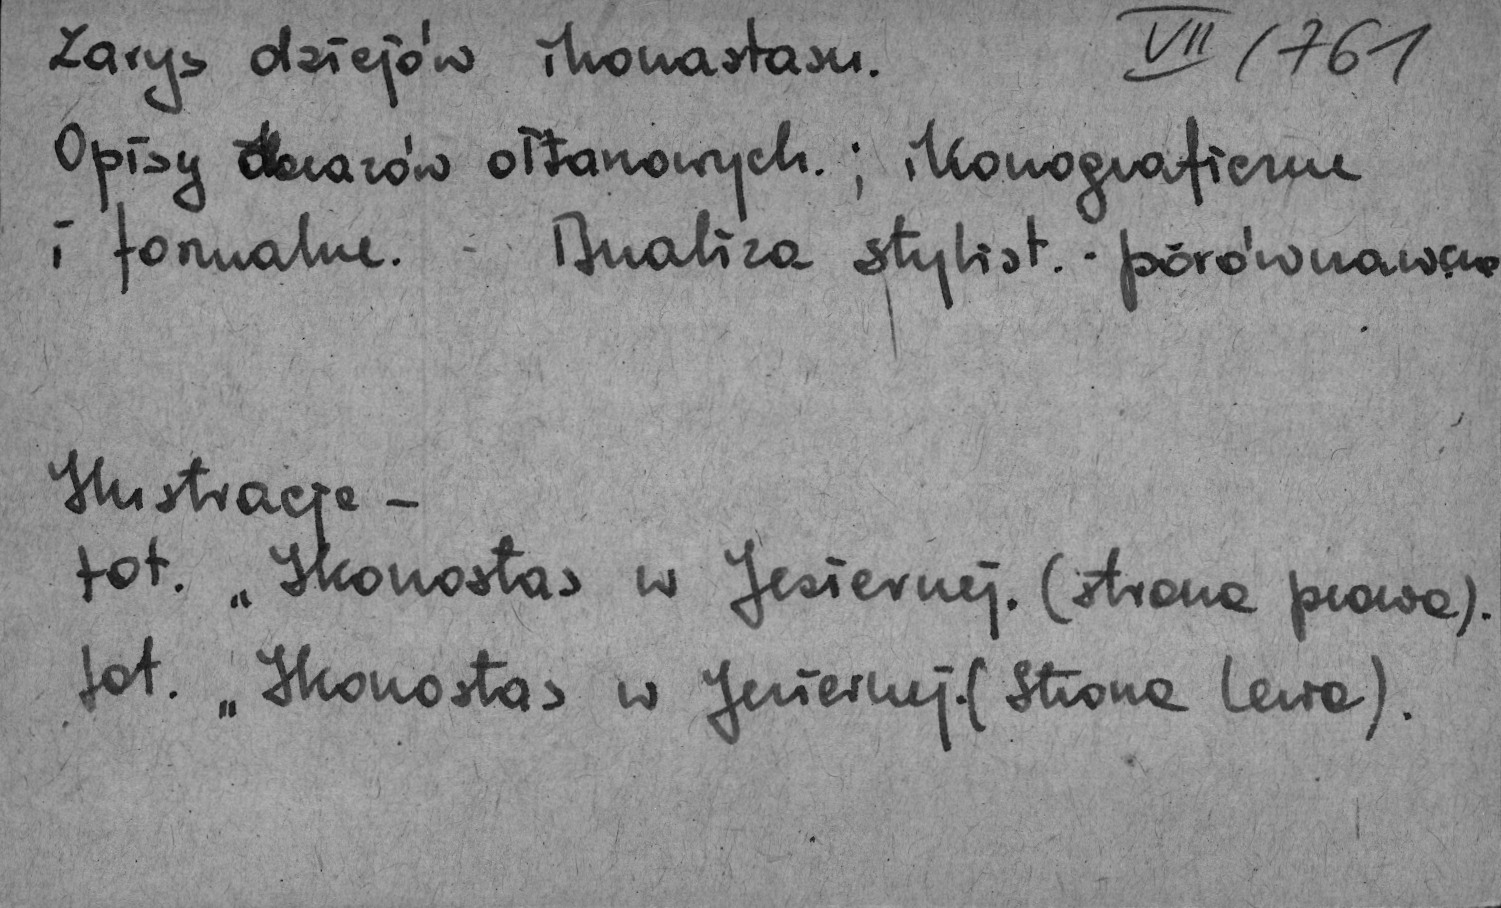 Zarys dziejów ikonastasu. VII/761
Opisy obrazów ołtarzowych.; ikonograficzne
i formalne. - Analiza stylist. - porównawcza
Ilustracje -
fot. „Ikonostas w Jeziernej. (strona prawa).
fot. „Ikonostas w Jeziernej. (Strona lewa).